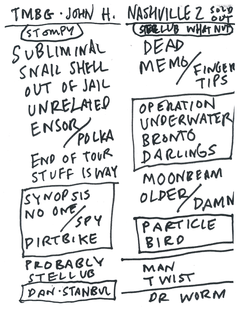 TMBG · JOHN H. NASHVILLE 2 SOLD OUT
STOMPY
SUBLIMINAL
SNAIL SHELL
OUT OF JAIL
UNRELATED
ENSOR/POLKA
END OF TOUR
STUFF IS WAY
SYNOPSIS
NO ONE/SPY
DIRTBIKE
PROBABLY
STELLUB
DAN · STANBUL
STELLUB WHAT NUT
DEAD
MEMO/FINGER TIPS
OPERATION
UNDERWATER
BRONTO
DARLINGS
MOONBEAM
OLDER/DAMN
PARTICLE
BIRD
MAN
TWIST
DR WORM